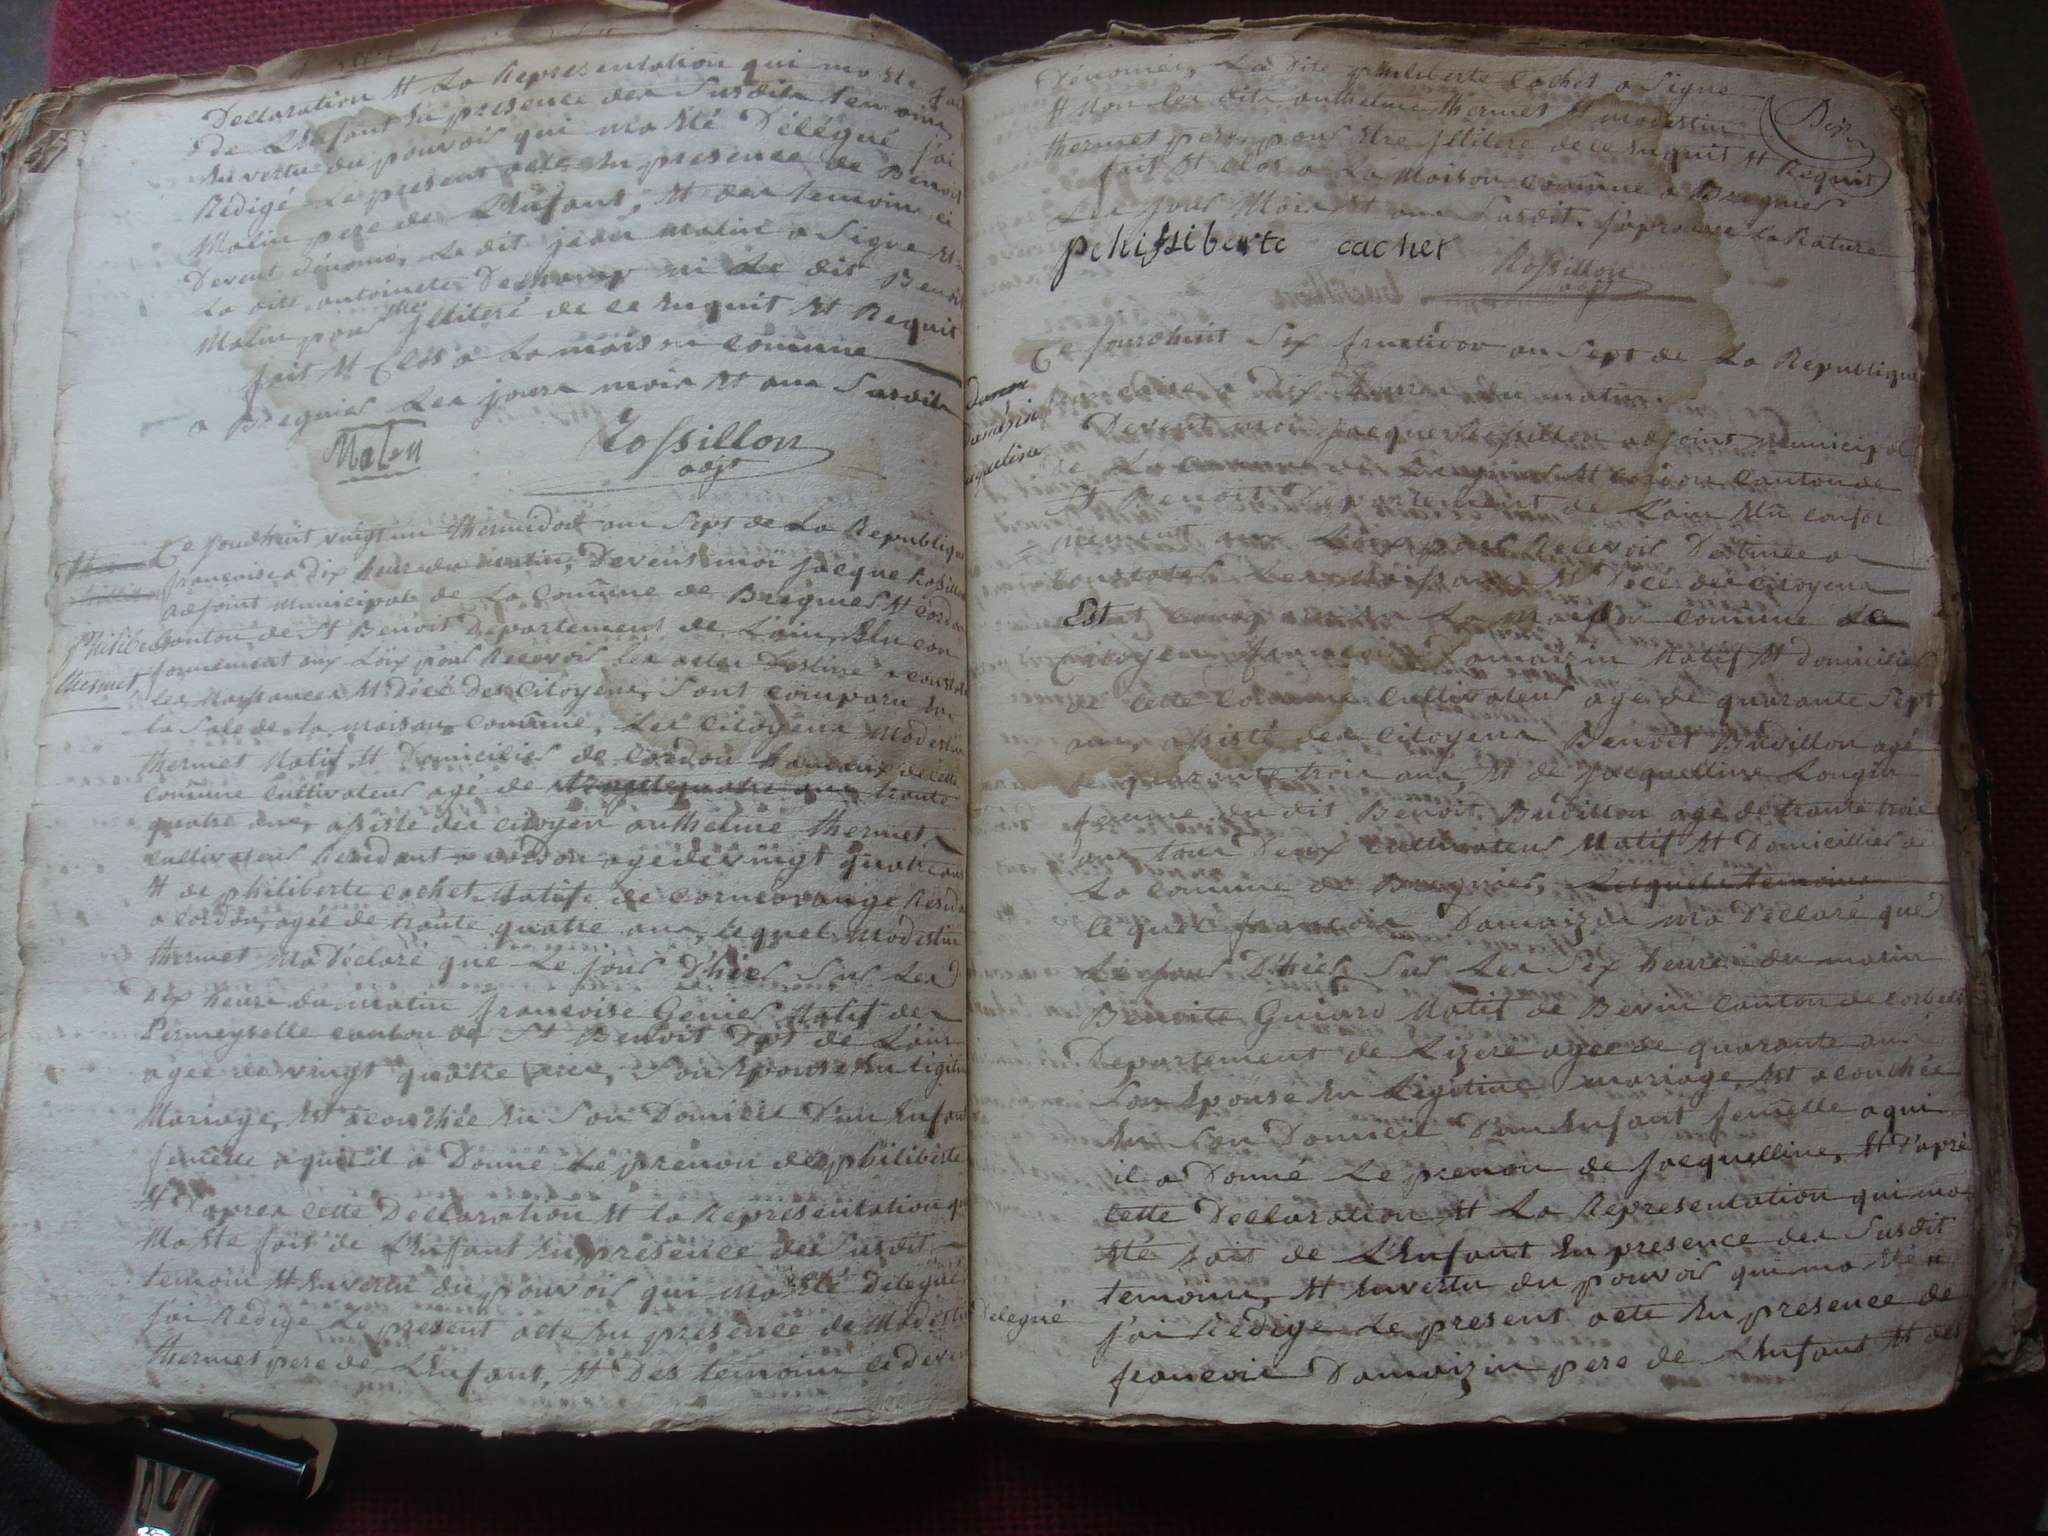 Declaration Et La Representation qui ma Ete fai
de L'Enfant En presence der Susdits temoins
En vertu du pouvoir qui ma Eté Délégué j'ai
Redigé Le present acte En presence de Benoit
Matin pere de L'Enfant, Et der temoins ci
Devent dénomé, Le dit jean matin a Signe Et
La dite antoinete Dechamp ni Le dit Benoit
Matin pour Etre Illiteré de ce Enquit Et Requit
fait Et Clos a La maison comune
a Bregnier Les jours mois Et an Susdits
Maten Rossillon
adjt
Ce jourdhuit vingt un thermidor an Sept de La Republique
francoise a dix heure du matin, Devent moi jacque Rosillon
adjoint Municipal de La Comune de Bregnier Et Cordon
Philiberte
thermet
canton de St Benoit Departement de L'ain, Elu con
formement aux Loix pour Recevoir Les actes Destiné a constate
Les Naissances Et décé Des Citoyens, Sont comparu En
la Sale de la maison Comune, Les Citoyens Modestin
thermet Natif Et Domicilier de Cordon hameaux de cette
comune Cultivateur agé de trante
quatre ans, assisté des citoyen anthelme thermet
Cultivateur Residant a cordon agé de vingt quatre ans
Et de philiberte cachet Native de corneorange Resid
a Cordon, agée de trante quatre ans, lequel Modestin
thermet Ma Déclaré que Le jour D'hier Sur Les
Dix heure du matin francoise Genier Natif de
Permeyselle canton de St Benoit Dept de L'ain
agée de vingt quatre ans, Son Epouse En Ligiti
Mariage, Est acouchée En Son Domicile D'un Enfant
femelle a qui il a Donné Le prenon de philiberte
Et D'apres cette Declaration Et la Representation qui
Ma Ete fait de L'Enfant En presence des Susdit
temoin Et En vertu du pouvoir qui ma Eté Delegué
j'ai Redigé Le present acte En presence de Modestin
thermet pere de L'Enfant, Et Des temoins ci devent
Dénomés, La Dite philiberte Cachet a Signe
Et Non Les dits anthelme thermet Et modestin
thermet pere, pour Etre Illitere de ce Enquit Et Requit
fait Et Clos a La Maison Comune a Bregnier
Les jour Mois Et an Susdit. j'aprouve La Rature
pehissiberte cachet Rossillon
adjt
Ce jourdhuit Six fructidor an Sept de La Republique
francoise a dix heure du matin
Damaizin
jaqueline
Devent moi jacque Rossillon adjoint Municipal
de La Commune de Bregnier Et Cordon Canton de
St Benoit Departement de L'ain Elu confor
mement aux Loix pour Recevoir Destinée a
constater Les Naissance Et Décé des Citoyens
Est comparu En La Maison Commune Le
Citoyen francois Damaizin Natif Et domicilier
de cette Comune Cultivateur agé de quarante Sept
ans, assisté des Citoyens Benoit Budillon agé
de quarante trois ans, Et de Jacquelline Longin
femme du dit Benoit Budillon agé de trante trois
ans tous Deux Cultivateur Natif Et Domicillier de
La Comune de Bregnier, Lesquels temoins
Le quel francois Damaizin ma Déclaré que
Le jour D'hier Sur Les Six heure du matin
Benoite Guiard Natif de Bevin Canton de Corbeli
Departement de Lizere agée de quarante ans
Son Epouse En Ligitime mariage, Est acouchée
En Son Domicile D'un Enfant femelle a qui
il a Donné Le prenon de Jacquelline, Et D'apré
cette Declaration Et La Representation qui ma
Eté fait de L'Enfant En presence des Susdit
temoins, Et En vertu du pouvoir qui ma Eté
Delegué
j'ai Redige Le present acte En presence de
francois Damaizin pere de L'Enfant Et des